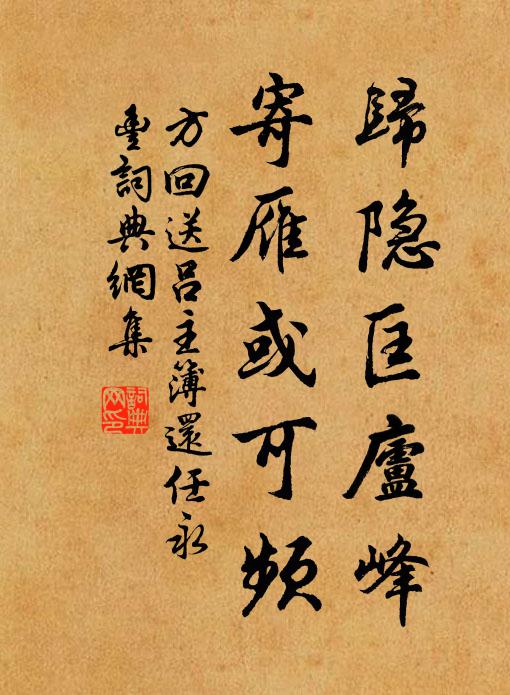 歸隐匡廬峰
寄雁或可頻
方回送呂主簿還任永
豊詞典網集
詞典
网印